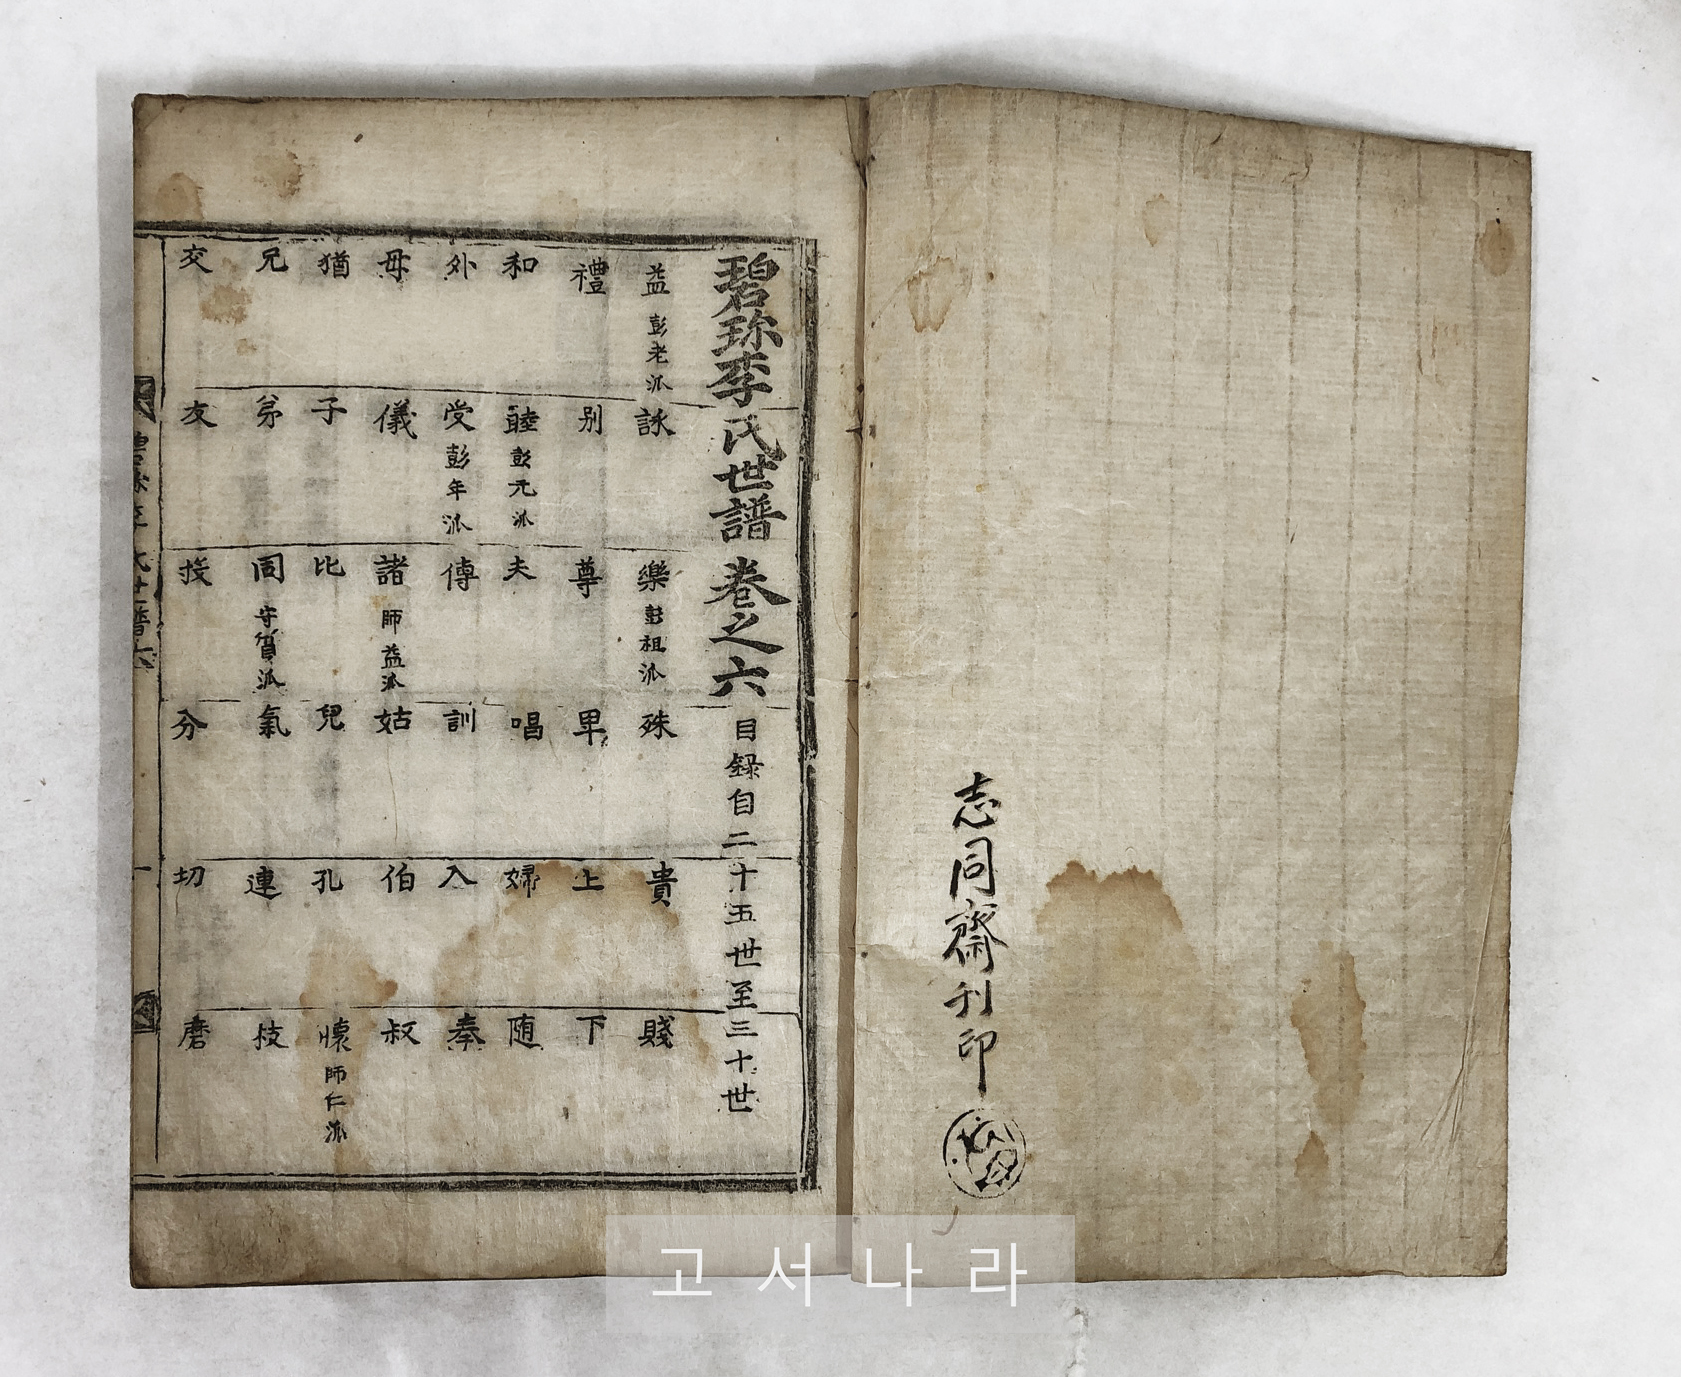 志同齋刊印
碧珎李氏世譜卷之六 目録自二十五世至三十世
益 彭老派 詠 樂 彭祖派 殊 貴 賤
禮 别 尊 卑 上 下
和 睦 彭元派 夫 唱 婦 随
外 受 彭年派 傅 訓 入 奉
母 儀 諸 師益派 姑 伯 叔
猶 子 比 兒 孔 懷 師仁派
兄 弟 同 守質派 氣 連 枝
交 友 投 分 切 磨
고서나라